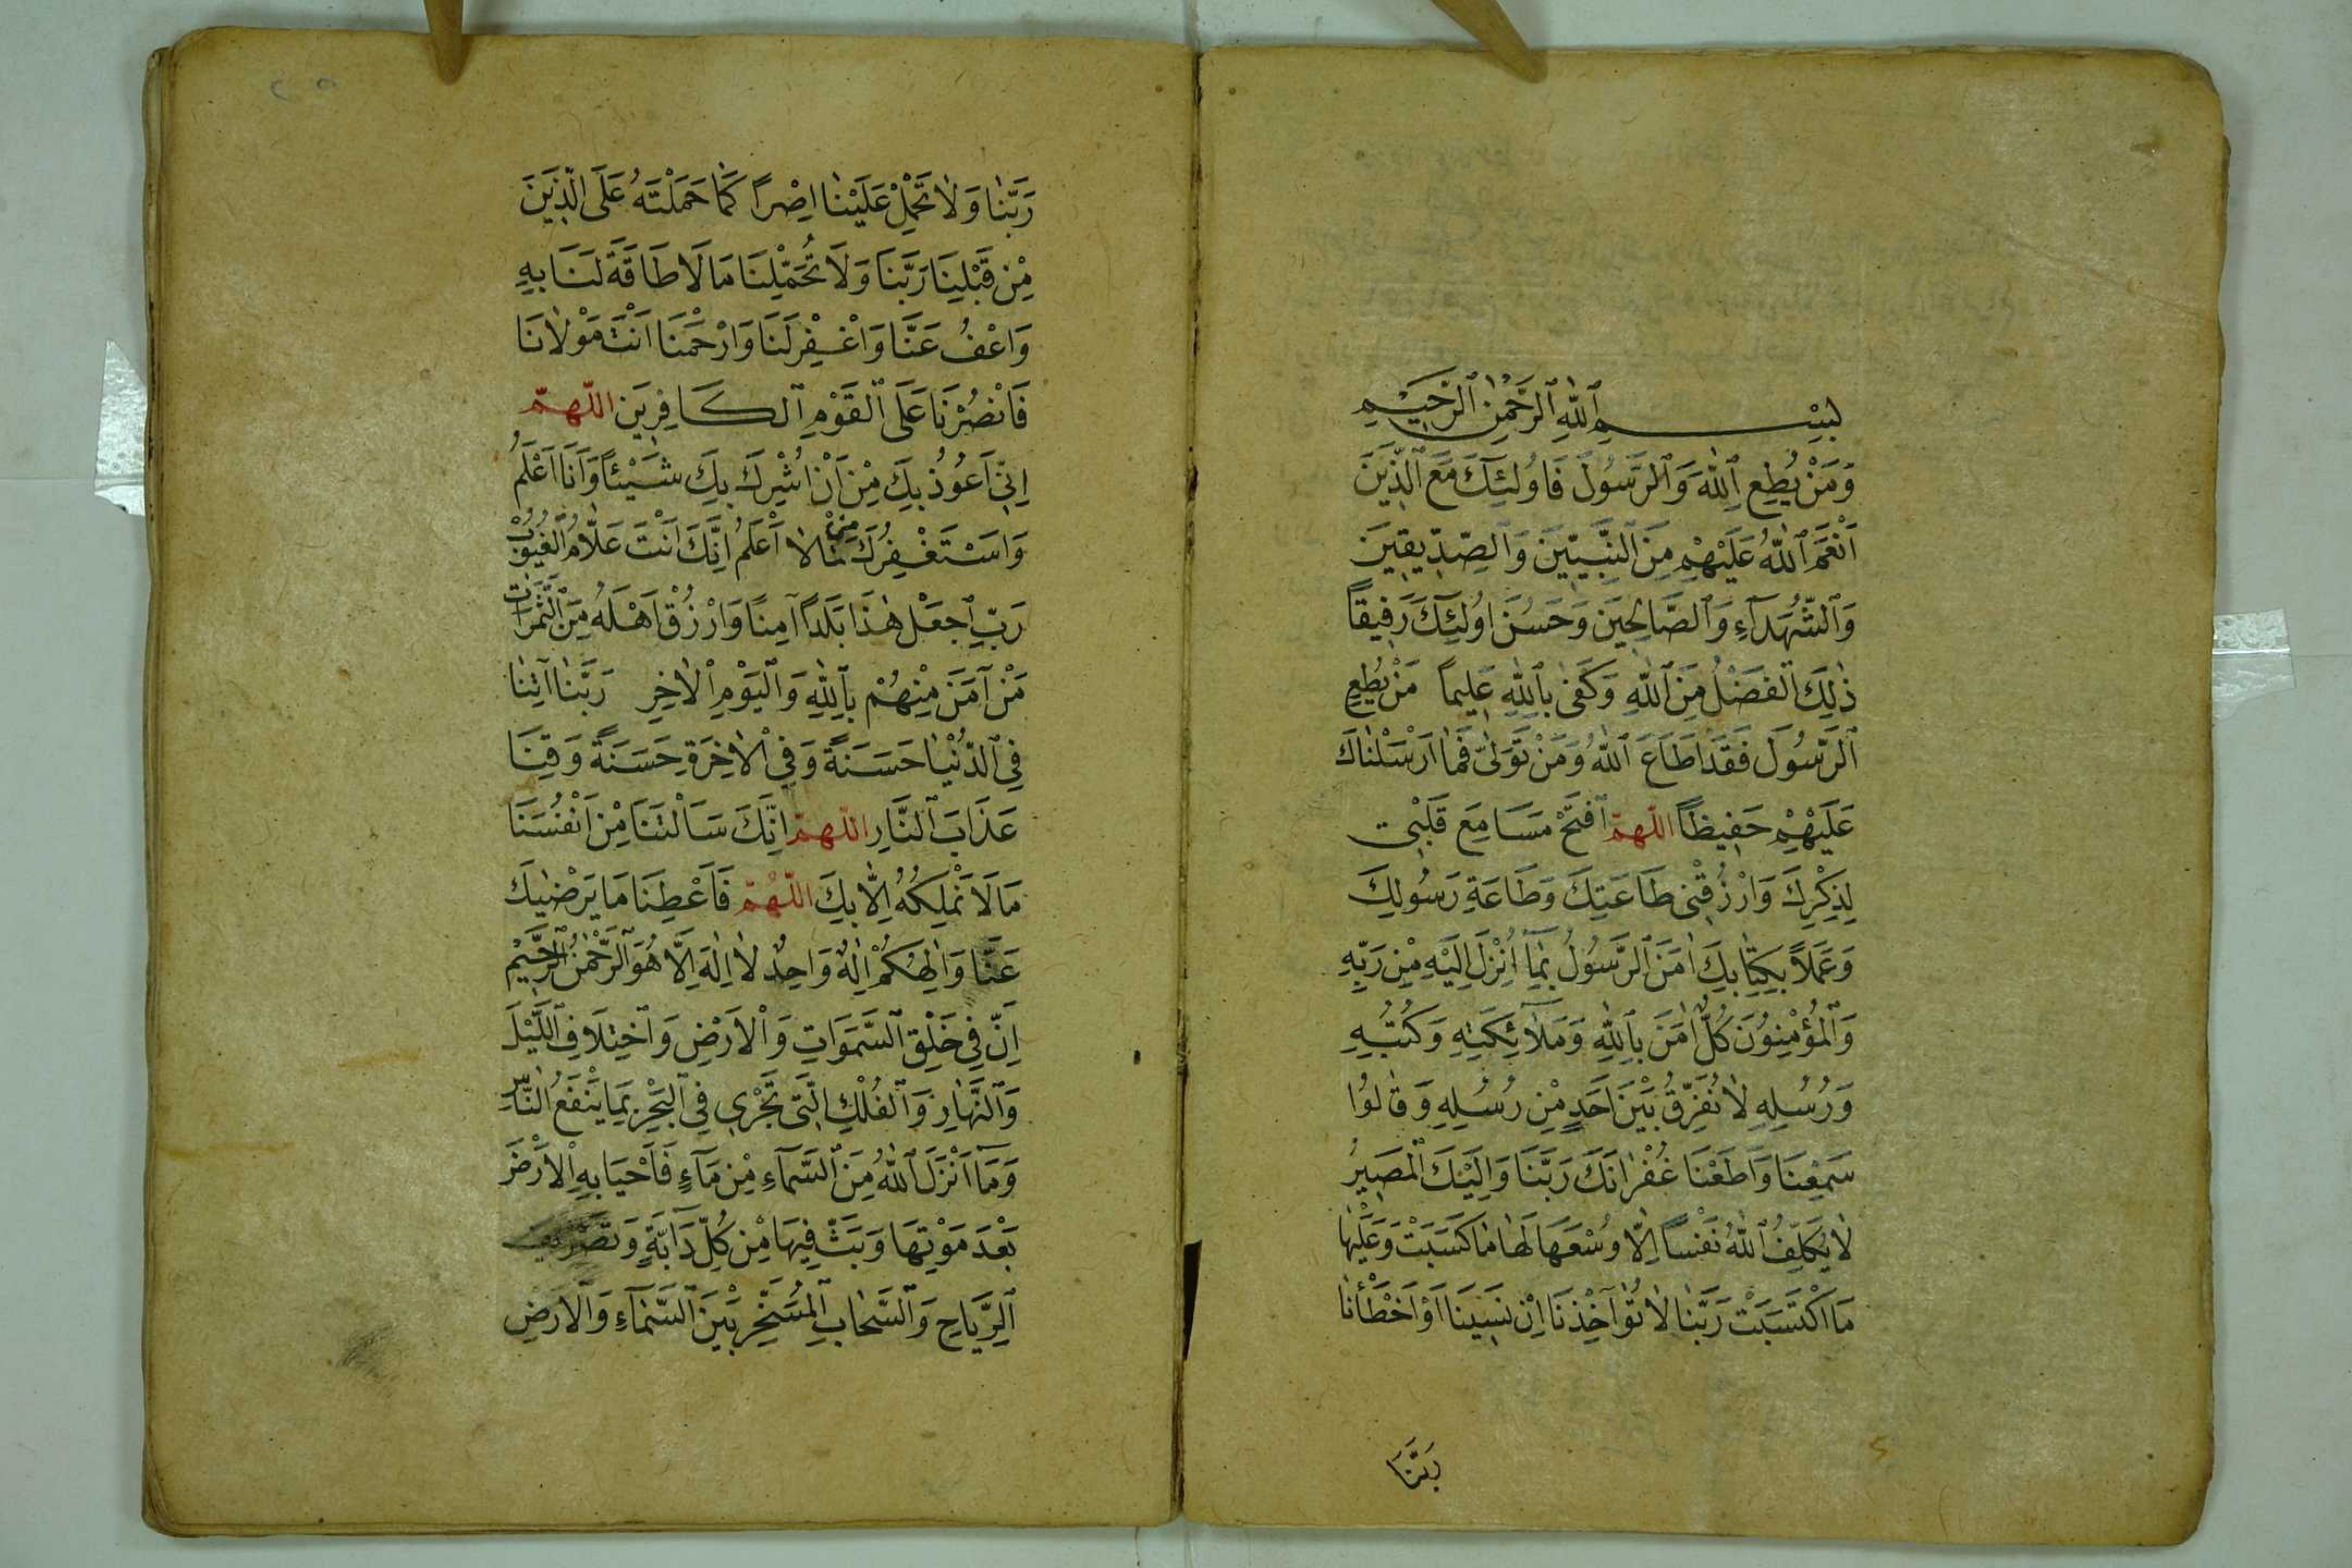 بِسْمِ ٱللّٰهِ ٱلرَّحْمٰنِ ٱلرَّحِيْمِ
وَمَنْ يُطِعِ ٱللّٰهَ وَٱلرَّسُولَ فَاُولٰئِكَ مَعَ ٱلَّذِينَ
اَنْعَمَ ٱللّٰهُ عَلَيْهِمْ مِنَ ٱلنَّبِيّٖينَ وَٱلصِّدِّيقِينَ
وَٱلشُّهَدَآءِ وَٱلصَّالِحِينَ وَحَسُنَ اُولٰئِكَ رَفِيقاً
ذٰلِكَ ٱلْفَضْلُ مِنَ ٱللّٰهِ وَكَفىٰ بِٱللّٰهِ عَلِيماً مَنْ يُطِعِ
ٱلرَّسُولَ فَقَدْ اَطَاعَ ٱللّٰهَ وَمَنْ تَوَلّىٰ فَمَا اَرْسَلْنَاكَ
عَلَيْهِمْ حَفِيظاً اللّهمّ ٱفْتَحْ مَسَامِعَ قَلْبِى
لِذِكْرِكَ وَارْزُقْنِى طَاعَتِكَ وَطَاعَةِ رَسُولِكَ
وَعَمَلاً بِكِتَابِكَ اٰمَنَ ٱلرَّسُولُ بِمَآ اُنْزِلَ اِلَيْهِ مِنْ رَبِّهِ
وَٱلْمُؤْمِنُونَ كُلٌّ اٰمَنَ بِٱللّٰهِ وَمَلآئِكَتِهِ وَكُتُبِهِ
وَرُسُلِهِ لاٰ نُفَرِّقُ بَيْنَ اَحَدٍ مِنْ رُسُلِهِ وَقَالُوا
سَمِعْنَا وَاَطَعْنَا غُفْرٰانَكَ رَبَّنَا وَاِلَيْكَ ٱلْمَصِيرُ
لاٰ يُكَلِّفُ ٱللّٰهُ نَفْساً اِلّا وُسْعَهَا لَهَا مَا كَسَبَتْ وَعَلَيْهَا
مَا ٱكْتَسَبَتْ رَبَّنَا لاٰ تُؤٰاخِذْنَا اِنْ نَسِينَا اَوْ اَخْطَأْنَا
رَبَّنَا
رَبَّنَا وَلاٰ تَحْمِلْ عَلَيْنَا اِصْراً كَمَا حَمَلْتَهُ عَلَى الَّذِينَ
مِنْ قَبْلِنَا رَبَّنَا وَلاَ تُحَمِّلْنَا مَا لَا طَاقَةَ لَنَا بِهِ
وَاعْفُ عَنَّا وَاغْفِرْ لَنَا وَارْحَمْنَا اَنْتَ مَوْلاٰنَا
فَانْصُرْنَا عَلَى ٱلْقَوْمِ ٱلْكَافِرِينَ اللّهمّ
اِنِّى اَعُوذُ بِكَ مِنْ اَنْ اُشْرِكَ بِكَ شَيْئاً وَاَنَا اَعْلَمُ
وَاسْتَغْفِرُكَ مِمَّا لاٰ اَعْلَمُ اِنَّكَ اَنْتَ عَلاَّمُ الْغُيُوْبِ
رَبِّ ٱجْعَلْ هٰذَا بَلَداً آمِنًا وَارْزُقْ اَهْلَهُ مِنَ ٱلثَّمَرَاتِ
مَنْ آمَنَ مِنْهُمْ بِٱللّٰهِ وَٱلْيَوْمِ ٱلْاٰخِرِ رَبَّنَا اٰتِنَا
فِى ٱلدُّنْيَا حَسَنَةً وَفِى ٱلْاٰخِرَةِ حَسَنَةً وَقِنَا
عَذَابَ ٱلنَّارِ اللّهمّ اِنَّكَ سَاَلْتَنَا مِنْ اَنْفُسَنَا
مَا لَا نَمْلِكُهُ اِلّا بِكَ اللّهُمّ فَاَعْطِنَا مَا يَرْضٰيكَ
عَنَّا وَاِلٰهُكُمْ اِلٰهٌ وَاحِدٌ لاٰ اِلٰهَ اِلَّا هُوَ ٱلرَّحْمٰنُ ٱلرَّحِيْمُ
اِنَّ فِى خَلْقِ ٱلسَّمَوَاتِ وَٱلْاَرْضِ وَٱخْتِلَافِ ٱللَّيْلِ
وَٱلنَّهَارِ وَٱلْفُلْكِ الَّتِى تَجْرِى فِى ٱلْبَحْرِ بِمَا يَنْفَعُ النَّاسَ
وَمَآ اَنْزَلَ ٱللّٰهُ مِنَ ٱلسَّمآءِ مِنْ مَآءٍ فَاَحْيَا بِهِ ٱلْاَرْضَ
بَعْدَ مَوْتِهَا وَبَثَّ فِيهَا مِنْ كُلِّ دَآبَّةٍ وَتَصْرِيفِ
ٱلرِّيَاحِ وَٱلسَّحَابِ ٱلْمُسَخَّرِ بَيْنَ ٱلسَّمَآءِ وَٱلْاَرْضِ